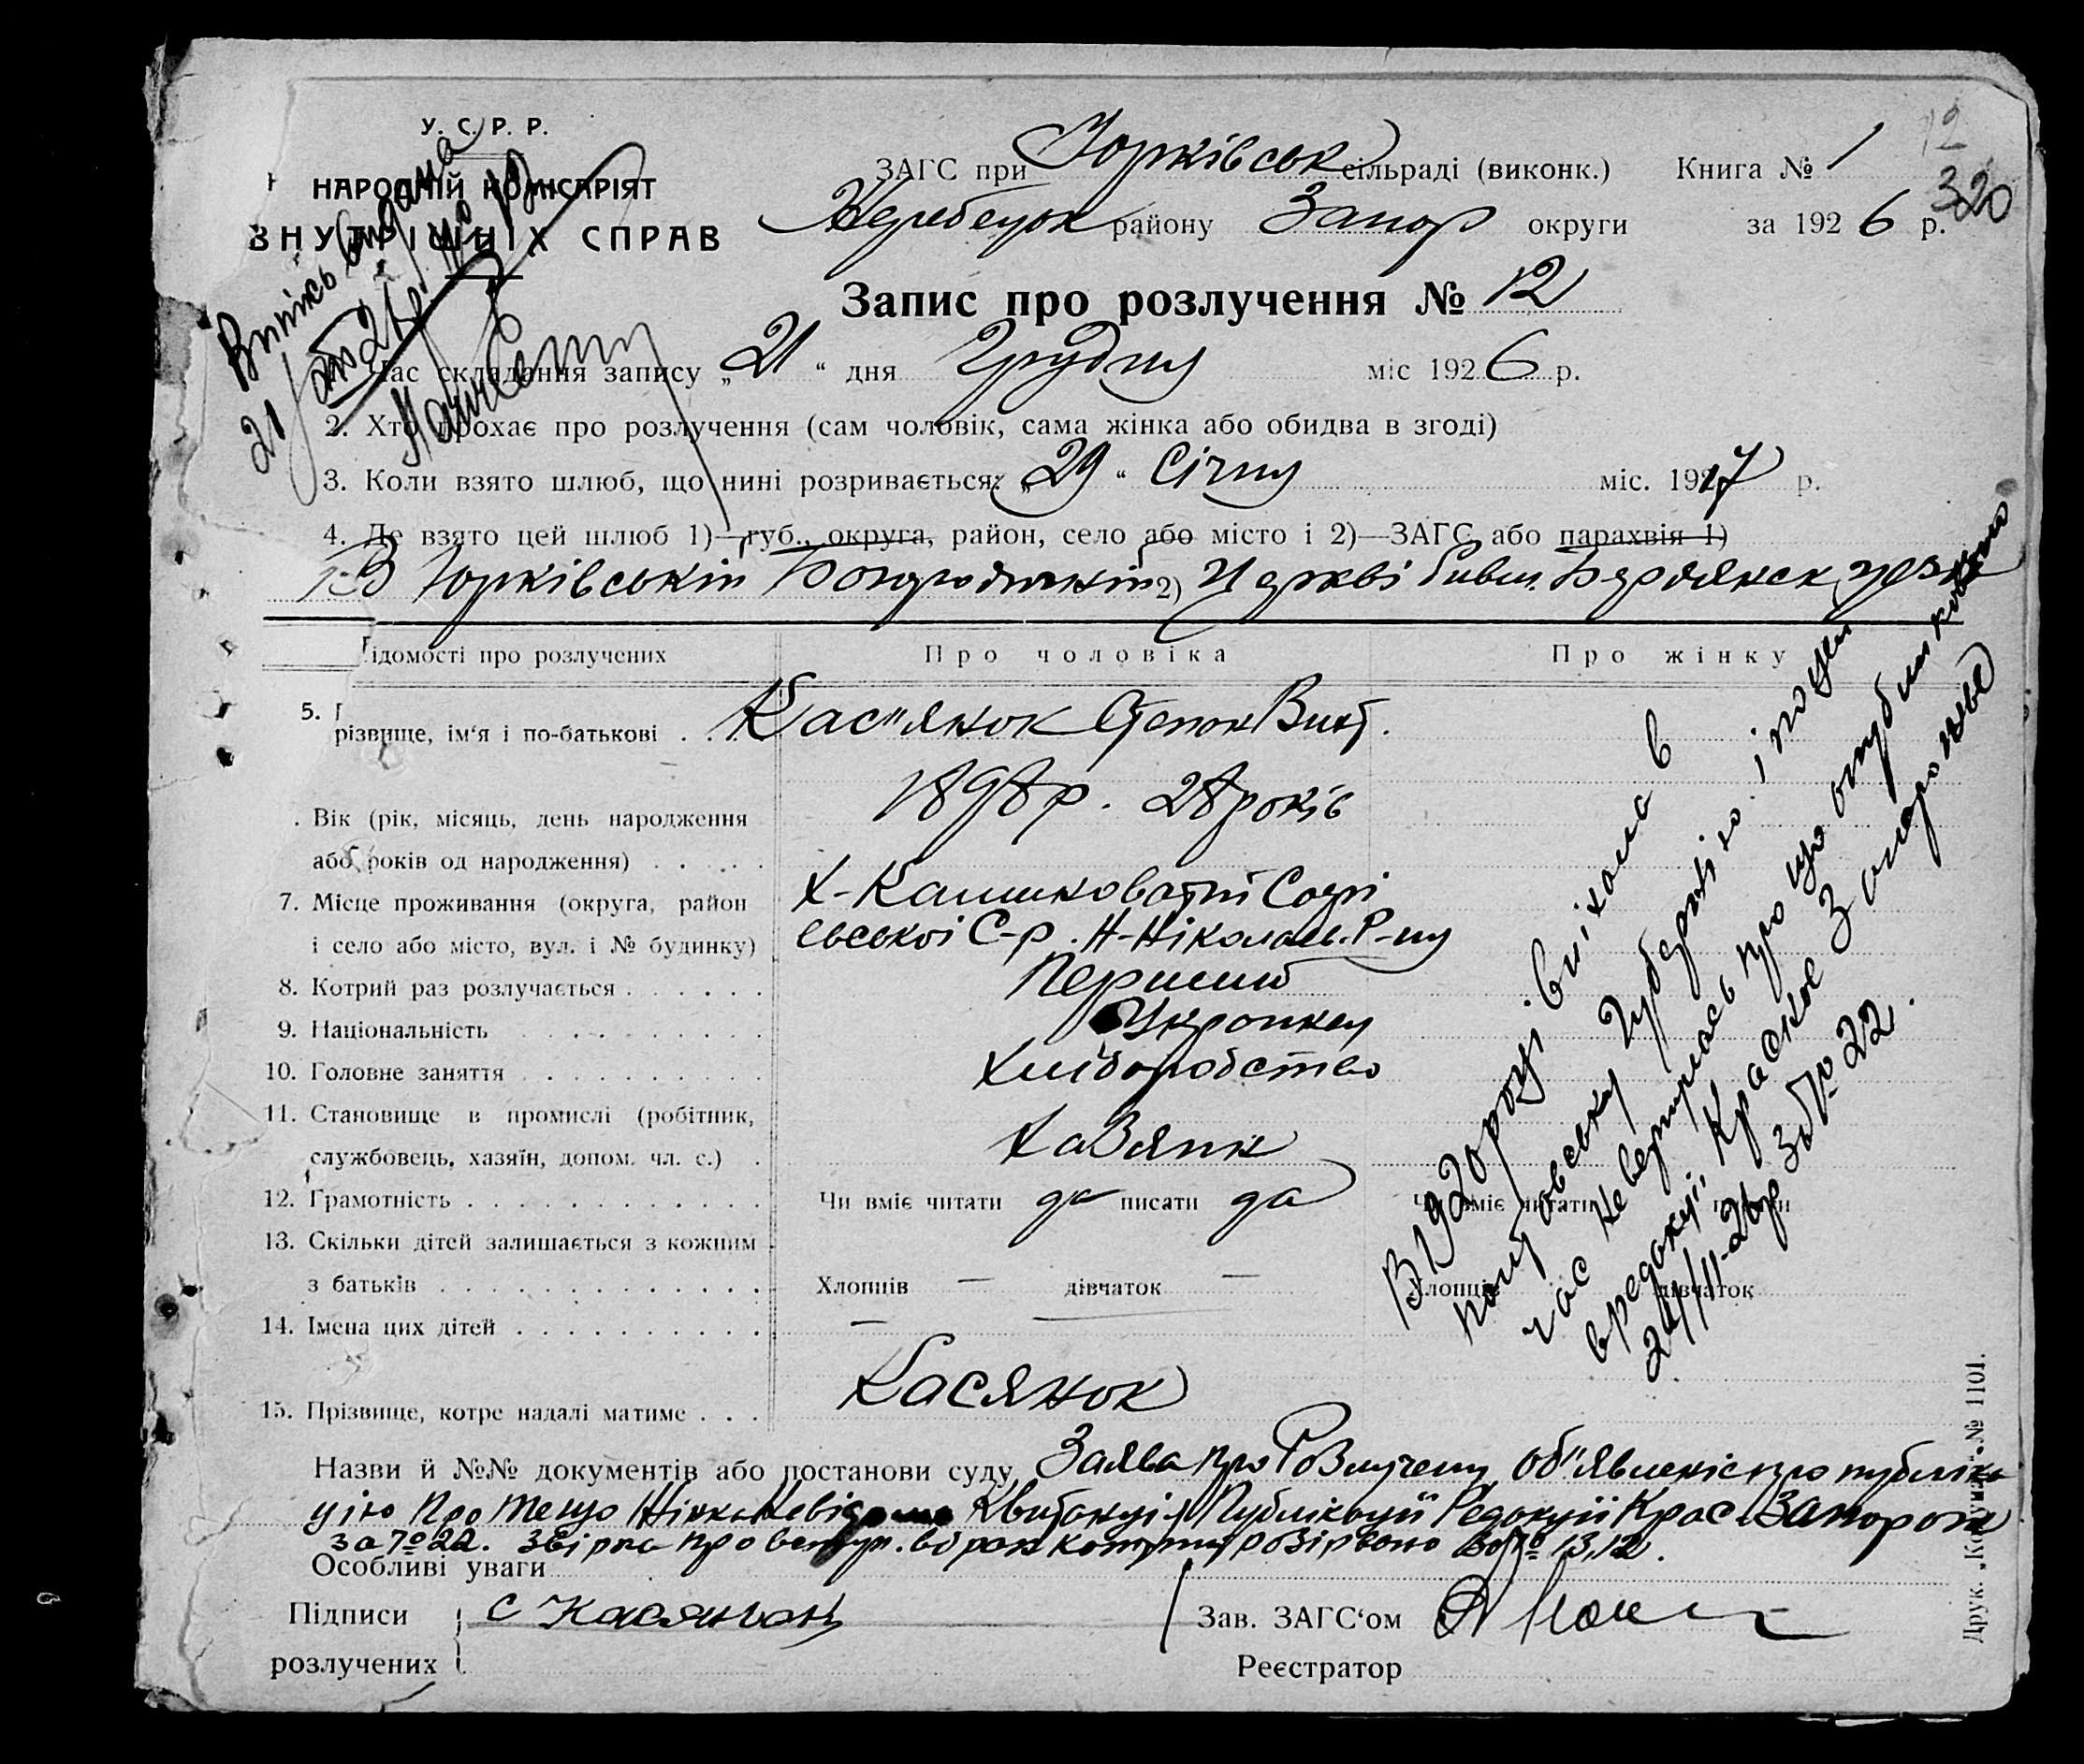 У. С. Р. Р.
НАРОДНІЙ КОМІСАРІЯТ
ВНУТРІШНІХ СПРАВ
ЗАГС при Юрківськ сільраді (виконк.) Книга № 1
12
320
Жеребецьк району Запор округи за 1926 р.
Запис про розлучення № 12
Випись видана
21/
Час складання запису „21“ дня Грудня міс 1926 р.
2. Хто прохає про розлучення (сам чоловік, сама жінка або обидва в згоді)
3. Коли взято шлюб, що нині розривається: „29“ Січня міс. 1917 р.
4. Де взято цей шлюб 1)—губ., округа, район, село або місто і 2)—ЗАГС або парахвія 1)
В Юрківській 2) Церкві бивш. Бердянск
ідомості про розлучених Про чоловіка Про жінку
5. різвище, ім‘я і по-батькові . . . Кас"янок Степан Викт.
. Вік (рік, місяць, день народження 1898 р. 28 років
або років од народження) . . . . .
7. Місце проживання (округа, район Х-Камшковатий Софі
і село або місто, вул. і № будинку) євської С-р. Н-Ніколаев. Р-ну
8. Котрий раз розлучається . . . . . . Перший
9. Національність . . . . . . . . . . Українец
10. Головне заняття . . . . . . . . . . Хліборобство
11. Становище в промислі (робітник,
службовець, хазяїн, допом. чл. с.) . Хазяин
12. Грамотність . . . . . . . . . . . . Чи вміє читати да писати да Чи вміє читати писати
13. Скільки дітей залишається з кожним
з батьків . . . . . . . . . . . . . . Хлопців — дівчаток — Хлопців дівчаток
14. Імена цих дітей . . . . . . . . . . —
15. Прізвище, котре надалі матиме . . . Касянок
В 1920 році виїхала в
Кубанську Губернію і по цей
час не вернулась про що опубликовано
в редакції „Красное Запорожье
24/11-26р за № 22.
Назви й №№ документів або постанови суду Заява про Розлучення, об"явленіє про публіка
цію про те що жінка невідома Квитанція Публікації Редакції Крас. Запорож
за № 22. про вступ. в брак котрий розірвано
Особливі уваги
Підписи С Касянок Зав. ЗАГС‘ом
розлучених Реєстратор
Друк. „Комунар“. № 1101.